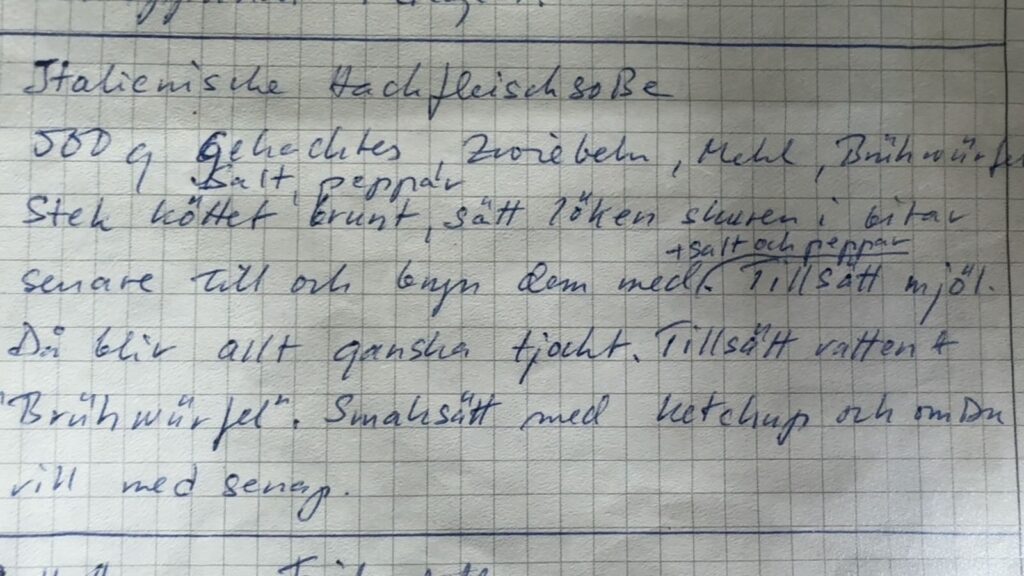 Italienische Hackfleischsoße
500 g Gehacktes, Zwiebeln, Mehl, Brühwürfel
Salt, peppar
Stek köttet brunt, sätt löken skuren i bitar
+ salt och peppar
senare till och bryn dem med. Tillsätt mjöl.
Då blir allt ganska tjockt. Tillsätt vatten +
"Brühwürfel". Smaksätt med ketchup och om Du
vill med senap.